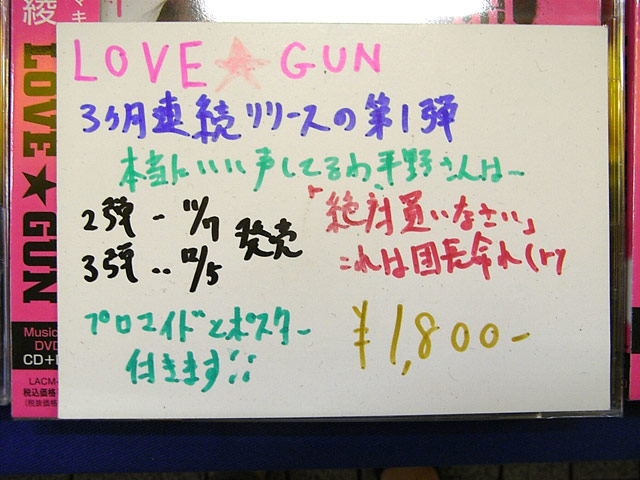 LOVE★GUN
3ヶ月連続リリースの第1弾
本当にいい声してるわ平野さんは〜
2弾 - 11/7
3弾 ‥ 12/5
発売
「絶対買いなさい」
これは団長命れ(ry
ブロマイドとポスター
付きます!!
¥1,800-
綾
マキ
LOVE★GUN
Music
DVD
CD+
LACM-
税込価格
(税抜価格